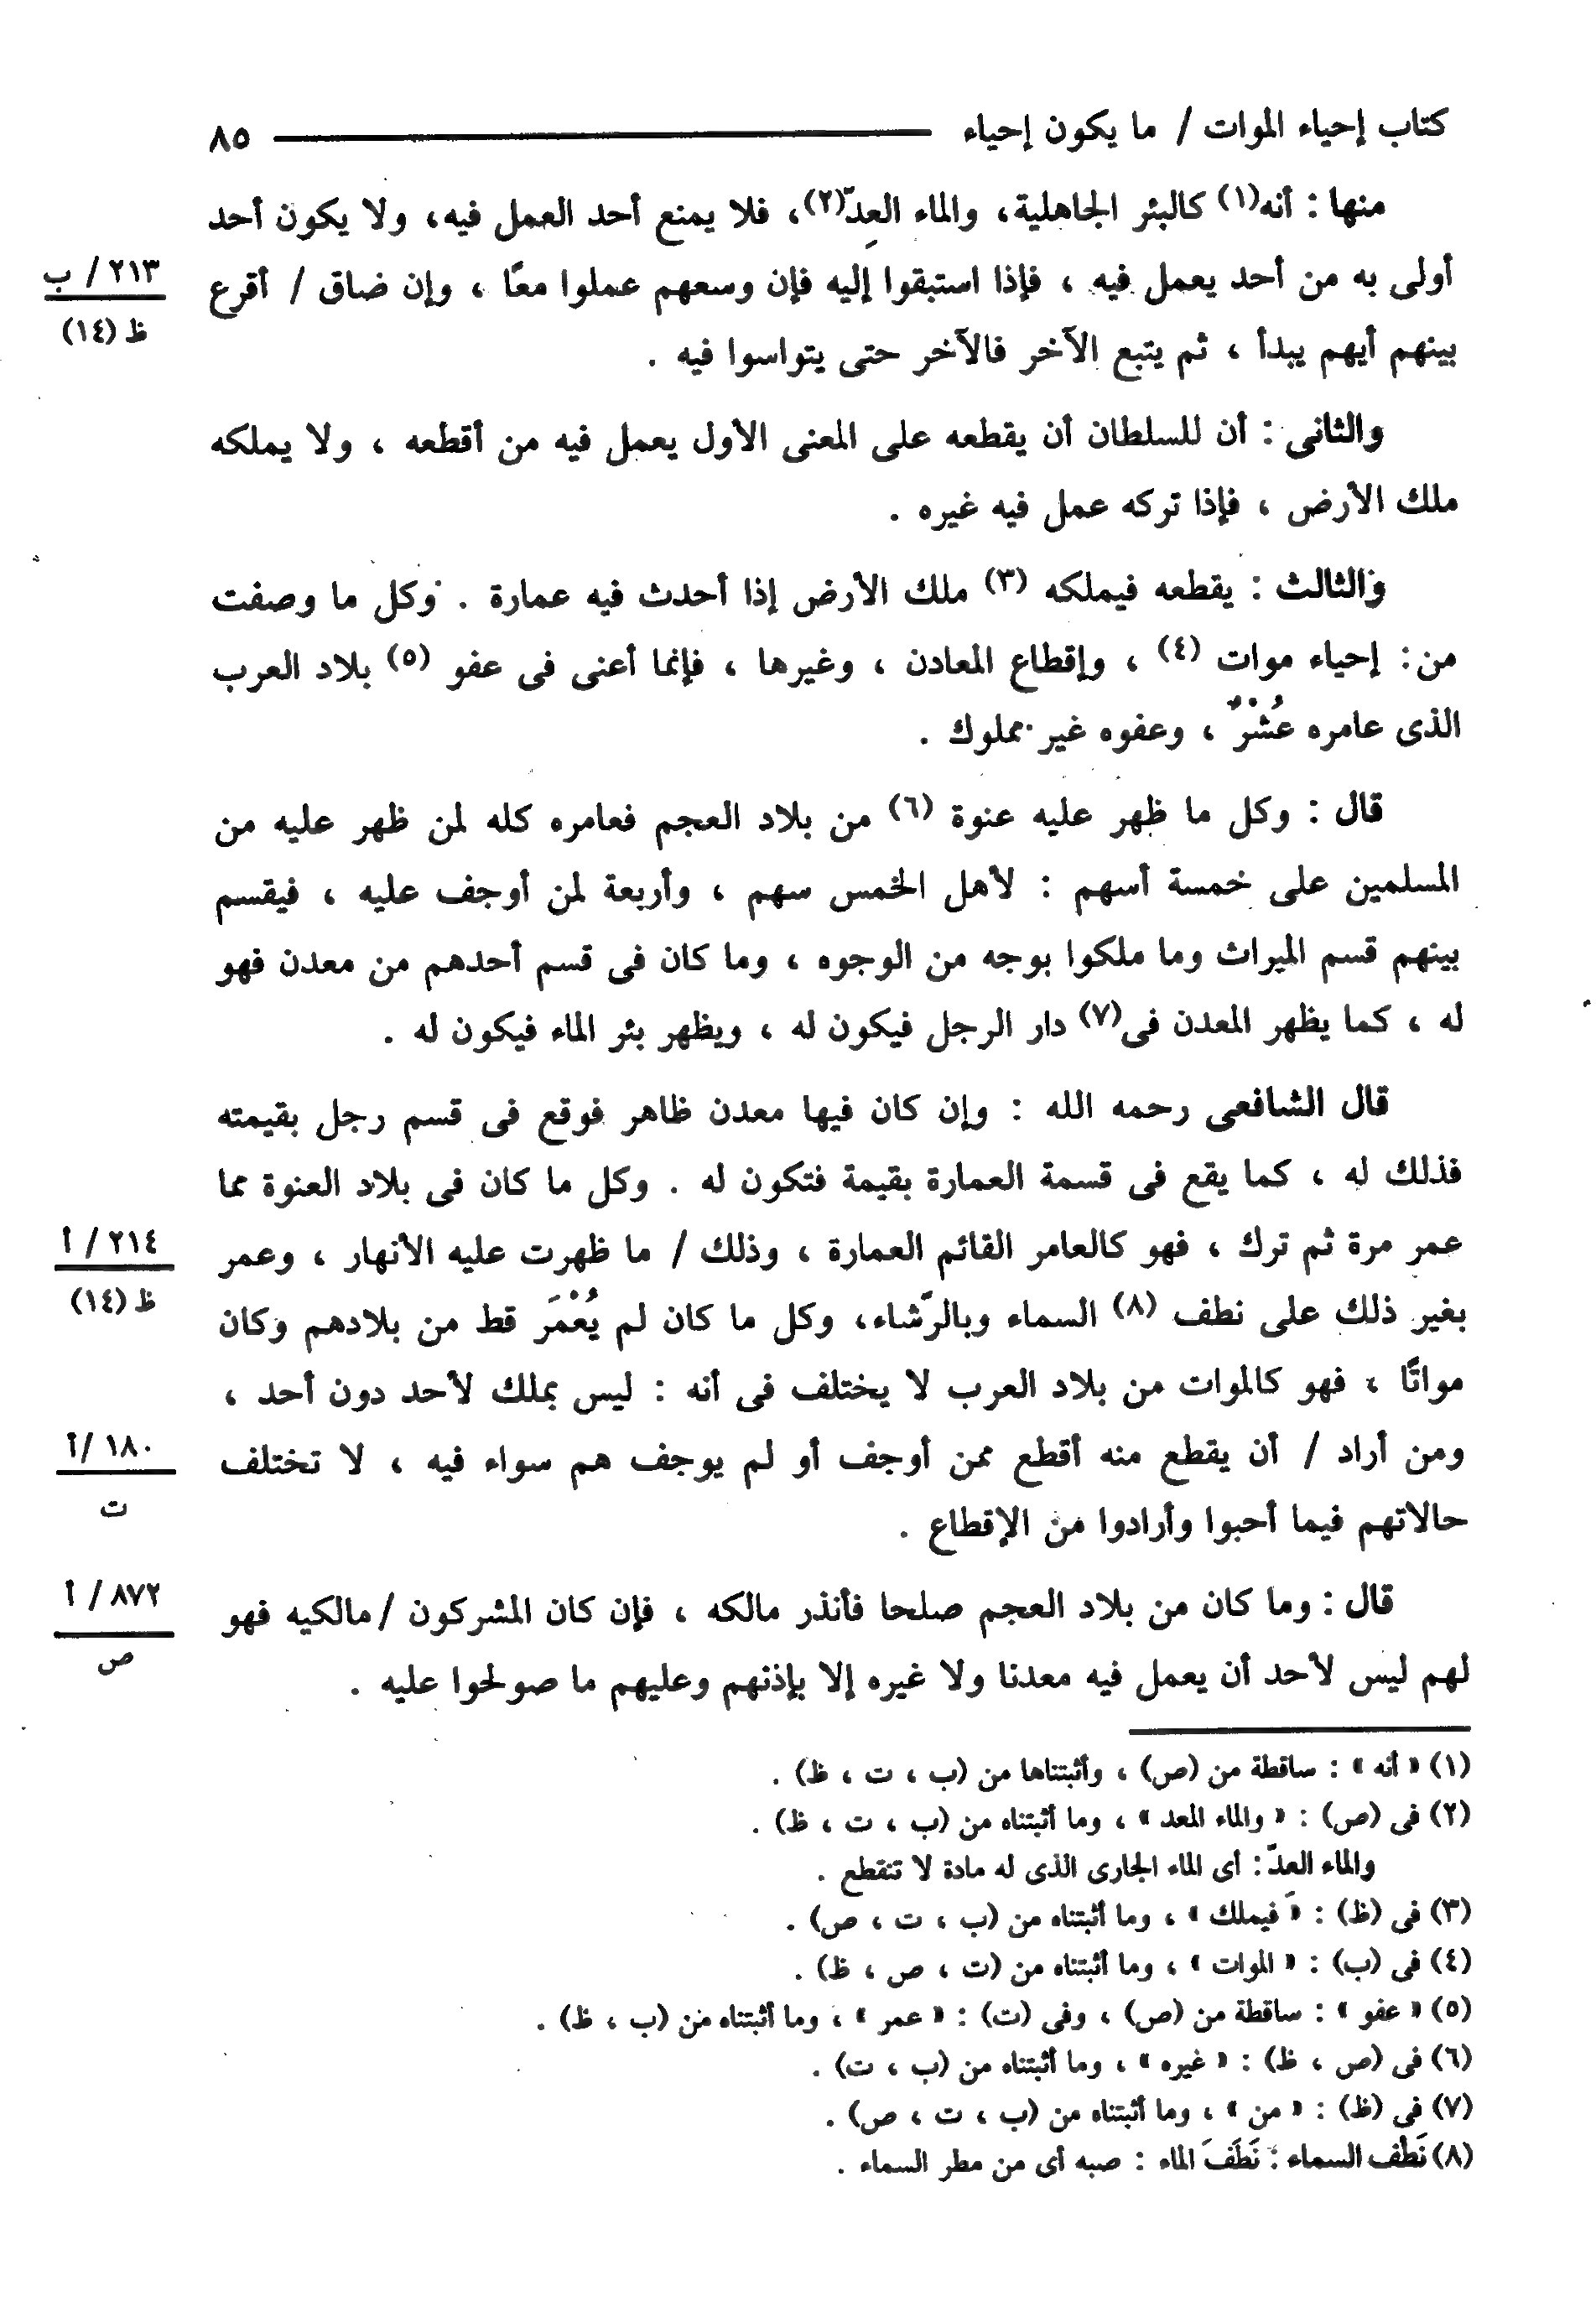 كتاب إحياء الموات / ما يكون إحياء ٨٥
منها : أنه(١) كالبئر الجاهلية، والماء العِدّ(٢)، فلا يمنع أحد العمل فيه، ولا يكون أحد
أولى به من أحد يعمل فيه ، فإذا استبقوا إليه فإن وسعهم عملوا معًا ، وإن ضاق / أقرع
٢١٣ / ب
ظ (١٤)
بينهم أيهم يبدأ ، ثم يتبع الآخر فالآخر حتى يتواسوا فيه .
والثانى : أن للسلطان أن يقطعه على المعنى الأول يعمل فيه من أقطعه ، ولا يملكه
ملك الأرض ، فإذا تركه عمل فيه غيره .
والثالث : يقطعه فيملكه (٣) ملك الأرض إذا أحدث فيه عمارة . وكل ما وصفت
من : إحياء موات (٤) ، وإقطاع المعادن ، وغيرها ، فإنما أعنى فى عفو (٥) بلاد العرب
الذى عامره عُشْرٌ ، وعفوه غير مملوك .
قال : وكل ما ظهر عليه عنوة (٦) من بلاد العجم فعامره كله لمن ظهر عليه من
المسلمين على خمسة أسهم : لأهل الخمس سهم ، وأربعة لمن أوجف عليه ، فيقسم
بينهم قسم الميراث وما ملكوا بوجه من الوجوه ، وما كان فى قسم أحدهم من معدن فهو
له ، كما يظهر المعدن فى(٧) دار الرجل فيكون له ، ويظهر بئر الماء فيكون له .
قال الشافعى رحمه الله : وإن كان فيها معدن ظاهر فوقع فى قسم رجل بقيمته
فذلك له ، كما يقع فى قسمة العمارة بقيمة فتكون له . وكل ما كان فى بلاد العنوة مما
عمر مرة ثم ترك ، فهو كالعامر القائم العمارة ، وذلك / ما ظهرت عليه الأنهار ، وعمر
٢١٤ / أ
ظ (١٤)
بغير ذلك على نطف (٨) السماء وبالرّشاء، وكل ما كان لم يُعْمَر قط من بلادهم وكان
مواتًا ، فهو كالموات من بلاد العرب لا يختلف فى أنه : ليس بملك لأحد دون أحد ،
ومن أراد / أن يقطع منه أقطع ممن أوجف أو لم يوجف هم سواء فيه ، لا تختلف
١٨٠ /أ
ت
حالاتهم فيما أحبوا وأرادوا من الإقطاع .
قال : وما كان من بلاد العجم صلحا فأنذر مالكه ، فإن كان المشركون /مالكيه فهو
٨٧٢ / أ
ص
لهم ليس لأحد أن يعمل فيه معدنا ولا غيره إلا بإذنهم وعليهم ما صولحوا عليه .
(١) « أنه » : ساقطة من (ص) ، وأثبتناها من (ب ، ت ، ظ) .
(٢) فى (ص) : « والماء المعد » ، وما أثبتناه من (ب ، ت ، ظ) .
والماء العدّ : أى الماء الجارى الذى له مادة لا تنقطع .
(٣) فى (ظ) : « فيملك » ، وما أثبتناه من (ب ، ت ، ص) .
(٤) فى (ب) : « الموات » ، وما أثبتناه من (ت ، ص ، ظ) .
(٥) « عفو » : ساقطة من (ص) ، وفى (ت) : « عمر » ، وما أثبتناه من (ب ، ظ) .
(٦) فى (ص ، ظ) : « غيره » ، وما أثبتناه من (ب ، ت) .
(٧) فى (ظ) : « من » ، وما أثبتناه من (ب ، ت ، ص) .
(٨) نَطْف السماء : نَطَفَ الماء : صبه أى من مطر السماء .